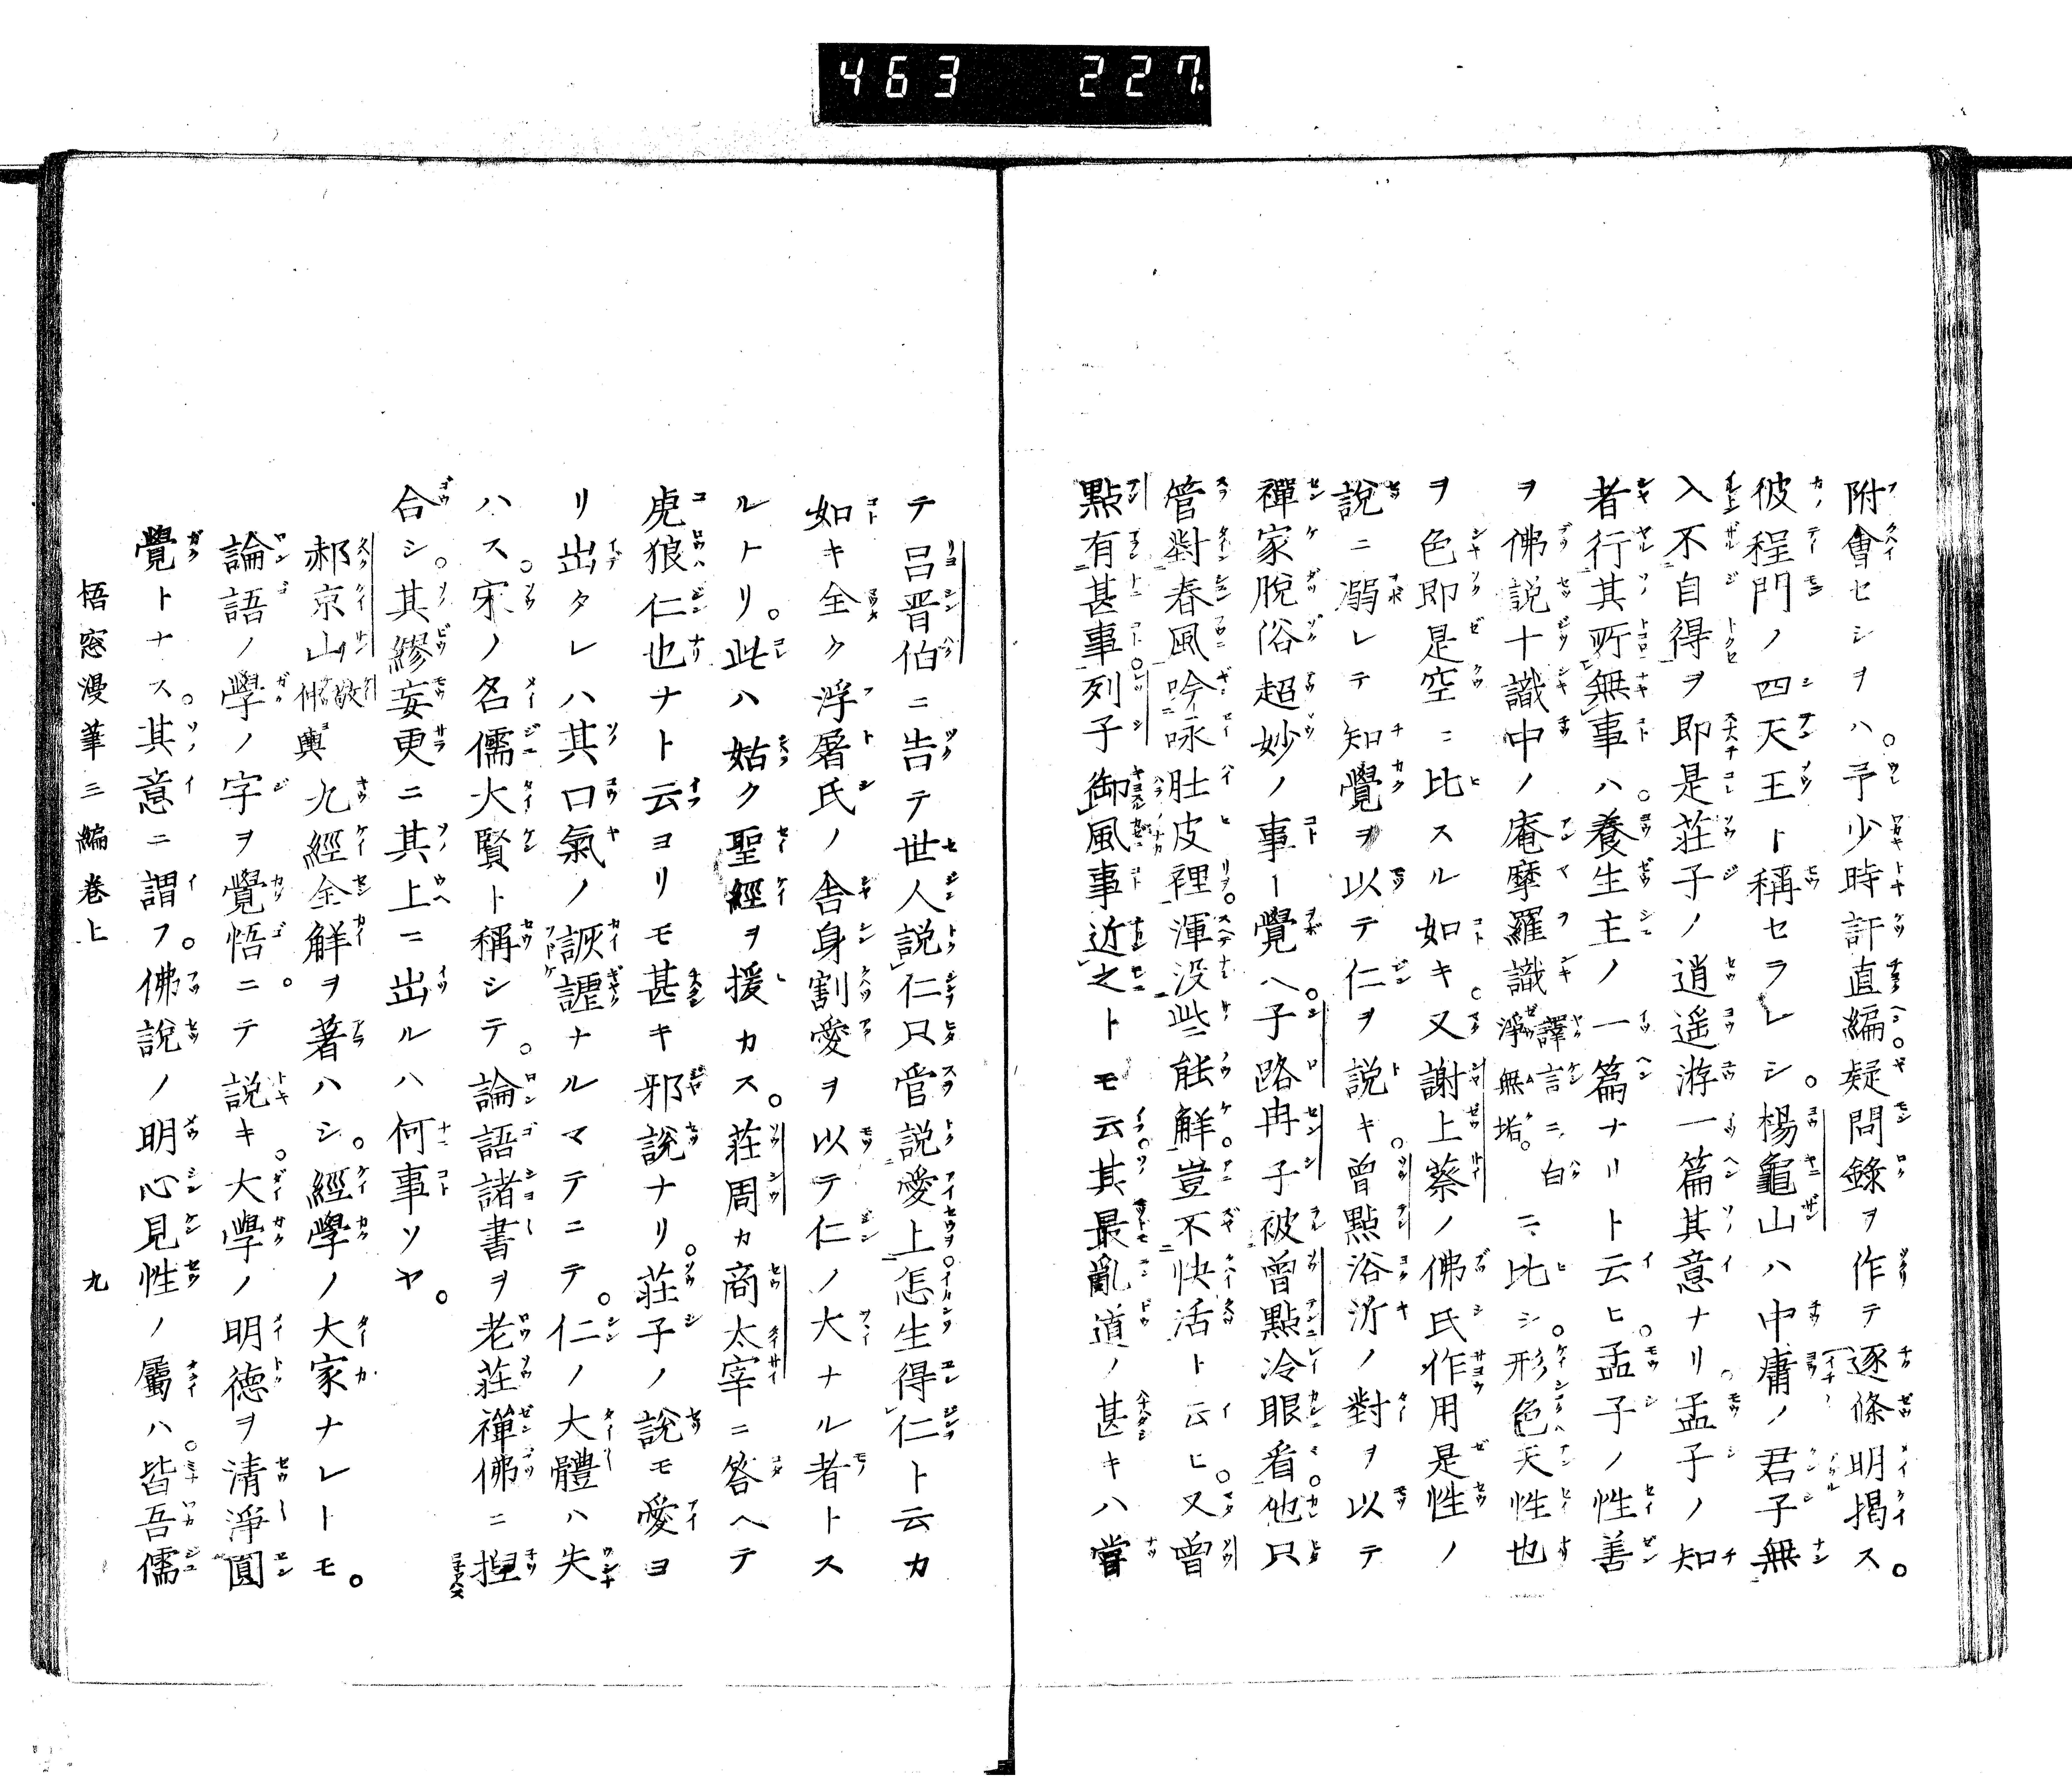 463 227
附會セシヲハ。予少時訐直編疑問錄ヲ作テ逐條明揭ス。
彼程門ノ四天王ト稱セラレシ。楊龜山ハ中庸ノ君子無
入不自得ヲ即是莊子ノ逍遥游一篇其意ナリ。孟子ノ知
者行其所無事ハ。養生主ノ一篇ナリト云ヒ。孟子ノ性善
ヲ佛説十識中ノ庵摩羅識譯言ニ白淨無垢。ニ比シ。形色天性也
ヲ色即是空ニ比スル如キ。又謝上蔡ノ佛氏作用是性ノ
說ニ溺レテ知覺ヲ以テ仁ヲ説キ。曾點浴沂ノ對ヲ以テ
禪家脫俗超妙ノ事ト覺ヘ。子路冉子被曾點冷眼看。他只
管對春風吟咏肚皮裡。渾没些能解。豈不快活ト云ヒ。又曾
點有甚事。列子御風事近之トモ云。其最亂道ノ甚キハ嘗
テ呂晋伯ニ告テ世人説仁只管説愛上。怎生得仁ト云カ
如キ全ク浮屠氏ノ舎身割愛ヲ以テ仁ノ大ナル者トス
ルトリ。此ハ姑ク聖經ヲ援カス。莊周カ商太宰ニ答ヘテ
虎狼仁也ナト云ヨリモ甚キ邪説ナリ。莊子ノ説モ愛ヨ
リ出タレハ其口氣ノ詼謔ナルマテニテ。仁ノ大體ハ失
ハス。宋ノ名儒大賢ト稱シテ。論語諸書ヲ老莊禪佛ニ揑
合シ。其繆妄更ニ其上ニ出ルハ何事ソヤ。
郝京山敬仲輿九經全解ヲ著ハシ。經學ノ大家ナレトモ。
論語ノ學ノ字ヲ覺悟ニテ説キ。大學ノ明徳ヲ清淨圓
覺トナス。其意ニ謂フ。佛説ノ明心見性ノ屬ハ。皆吾儒
悟窓漫筆三編卷上 九